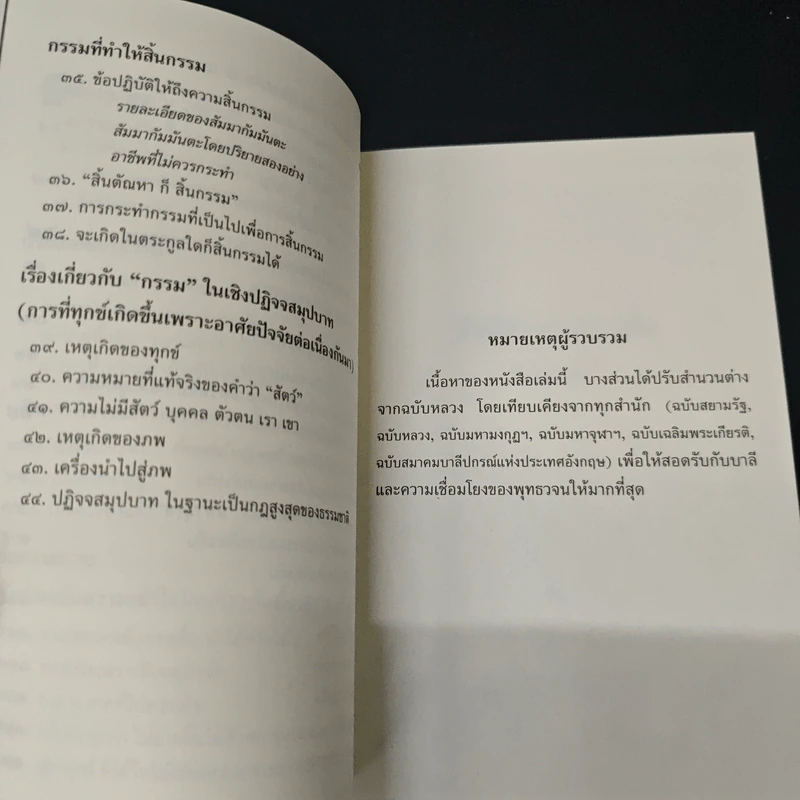 กรรมที่ทำให้สิ้นกรรม
๓๕. ข้อปฏิบัติให้ถึงความสิ้นกรรม
รายละเอียดของสัมมากัมมันตะ
สัมมากัมมันตะโดยปริยายสองอย่าง
อาชีพที่ไม่ควรกระทำ
๓๖. “สิ้นตัณหา ก็ สิ้นกรรม”
๓๗. การกระทำกรรมที่เป็นไปเพื่อการสิ้นกรรม
๓๘. จะเกิดในตระกูลใดก็สิ้นกรรมได้
เรื่องเกี่ยวกับ “กรรม” ในเชิงปฏิจจสมุปบาท
(การที่ทุกข์เกิดขึ้นเพราะอาศัยปัจจัยต่อเนื่องกันมา)
๓๙. เหตุเกิดของทุกข์
๔๐. ความหมายที่แท้จริงของคำว่า “สัตว์”
๔๑. ความไม่มีสัตว์ บุคคล ตัวตน เรา เขา
๔๒. เหตุเกิดของภพ
๔๓. เครื่องนำไปสู่ภพ
๔๔. ปฏิจจสมุปบาท ในฐานะเป็นกฎสูงสุดของธรรมชาติ
หมายเหตุผู้รวบรวม
เนื้อหาของหนังสือเล่มนี้ บางส่วนได้ปรับสำนวนต่าง
จากฉบับหลวง โดยเทียบเคียงจากทุกสำนัก (ฉบับสยามรัฐ,
ฉบับหลวง, ฉบับมหามงกุฏฯ, ฉบับมหาจุฬาฯ, ฉบับเฉลิมพระเกียรติ,
ฉบับสมาคมบาลีปกรณ์แห่งประเทศอังกฤษ) เพื่อให้สอดรับกับบาลี
และความเชื่อมโยงของพุทธวจนให้มากที่สุด